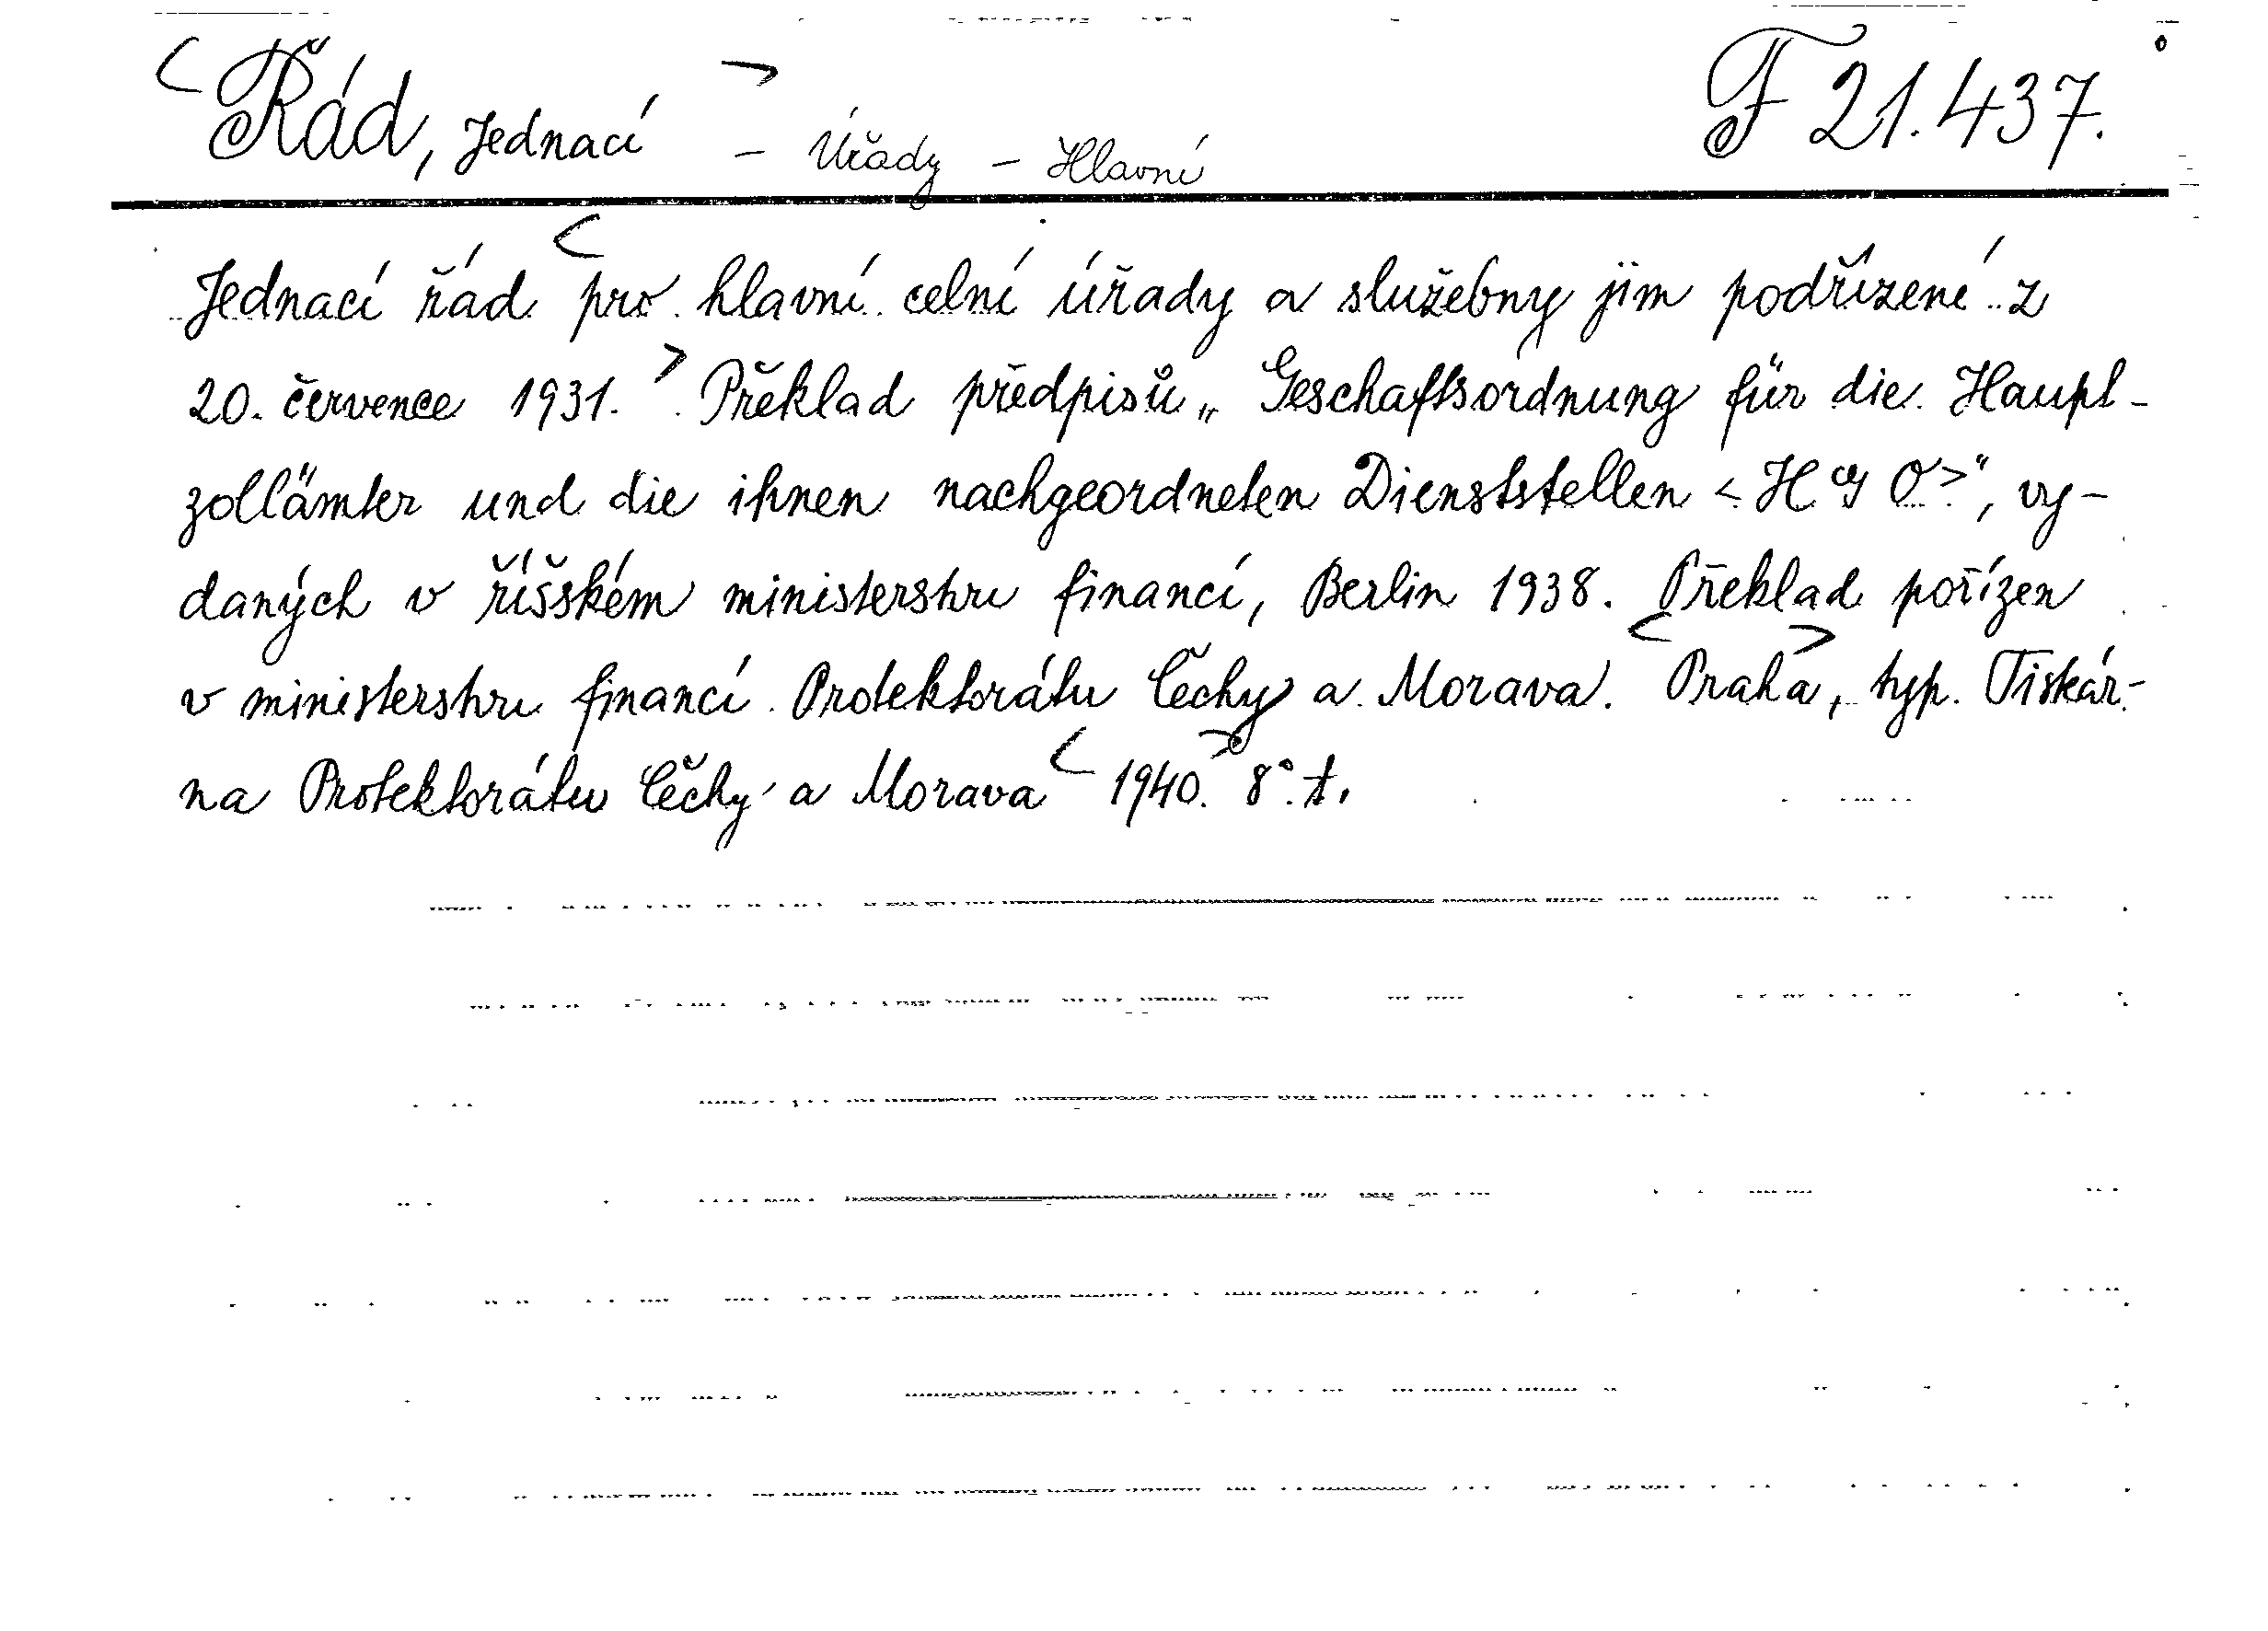 < Řád, Jednací > – Úřady – Hlavní F 21.437.
Jednací řád < pro hlavní celní úřady a služebny jim podřízené z
20. července 1931. > Překlad předpisů „Geschaftsordnung für die Haupt-
zollämter und die ihnen nachgeordneten Dienststellen < H G O >“, vy-
daných v říšském ministerstvu financí, Berlin 1938. Překlad pořízen
v ministerstvu financí Protektorátu Čechy a Morava. < Praha >, typ. Tiskár-
na Protektorátu Čechy a Morava < 1940. > 8°. t.